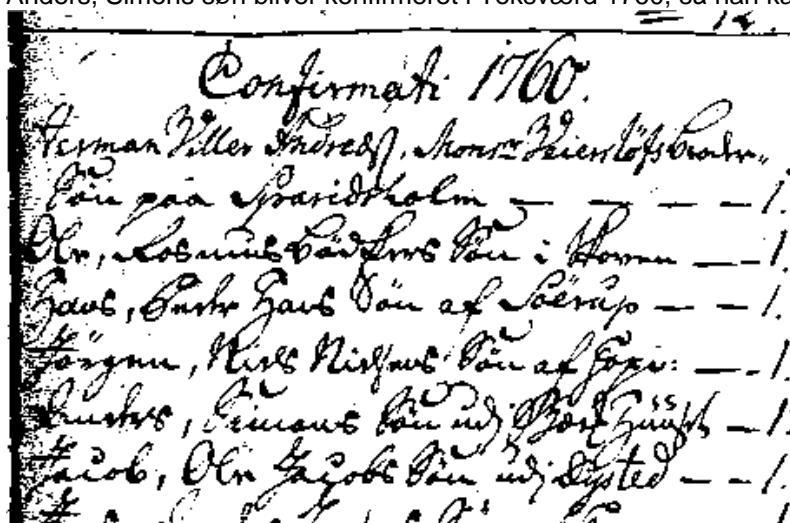 Anders, Simons søn bliver konfirmeret i Toksværd 1760, så han ka
12.
Confirmati 1760.
Herman Andreas, Mons.r broder-
Søn paa Sparesholm — — — — 1.
Ole, Rasmus Bødkers Søn i Skoven — — 1.
Hans, Peder Hans Søn af Söerup — — 1.
Jörgen, Niels Nielsens Søn af — 1.
Anders, Simons Søn udj Huuset — 1.
Jacob, Ole Jacobs Søn udj Dysted — — 1.